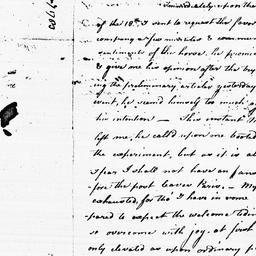 Immediately upon the
of the 18th I went to request the favor
company a few minutes &
sentiments of the horse, he promis
& give me his opinion after the
ing the preliminary articles yesterday
went, he send himself too much
his intention — This instant M
left me, he call'd upon me booted
the experiment, but as it is al
I fear I shall not have an
fore the post leaves Paris. — My
exhausted, for tho' I have in some
pared to expect the welcome tidin
so overcome with joy, at first
only elevated as upon ordinary